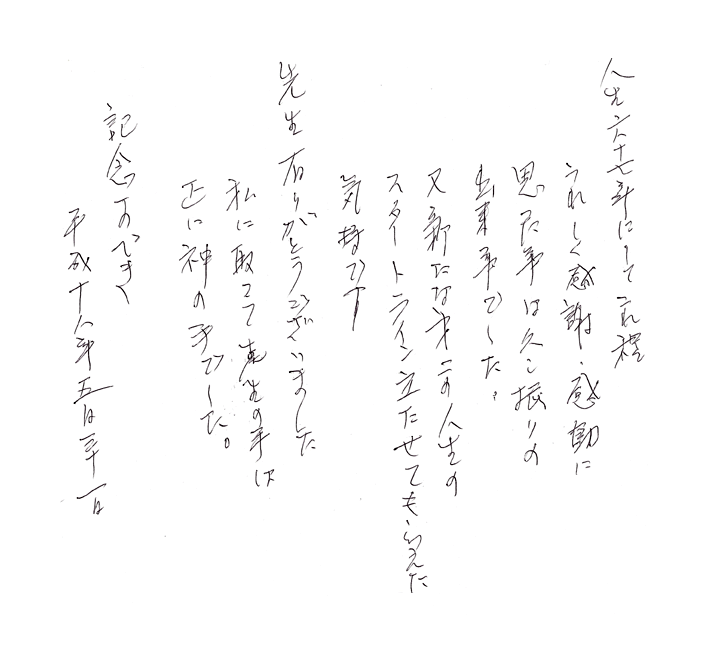 人生六十七年にしてこれ程
うれしく感謝、感動に
思った事は久し振りの
出来事でした。
又新たな第二の人生の
スタートライン立たせてもらえた
気持です
先生有りがとうございました
私に取って先生の手は
正に神の手でした。
記念すべき
平成十八年五月三十一日